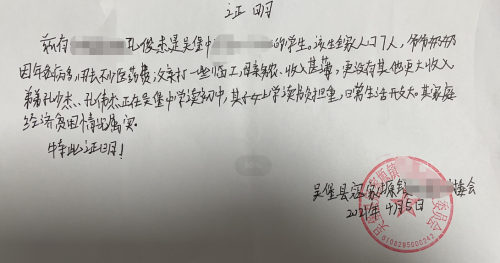 证明
兹有 孔俊杰是吴堡中 的学生。该生家人口7人,爷爷奶奶
因年龄 多,用去不少医药费,父亲打一些临工,母亲务农、收入甚薄,更没有其他更大收入
弟弟孔少杰、孔伟杰正在吴堡中学读初中,其子女上学读书负担重,日常生活开支大。其家庭
经济贫困情况属实。
特此证明!
吴堡县寇家塬镇 委会
2021年4月5日
吴 塬镇 委员会
6108295000242